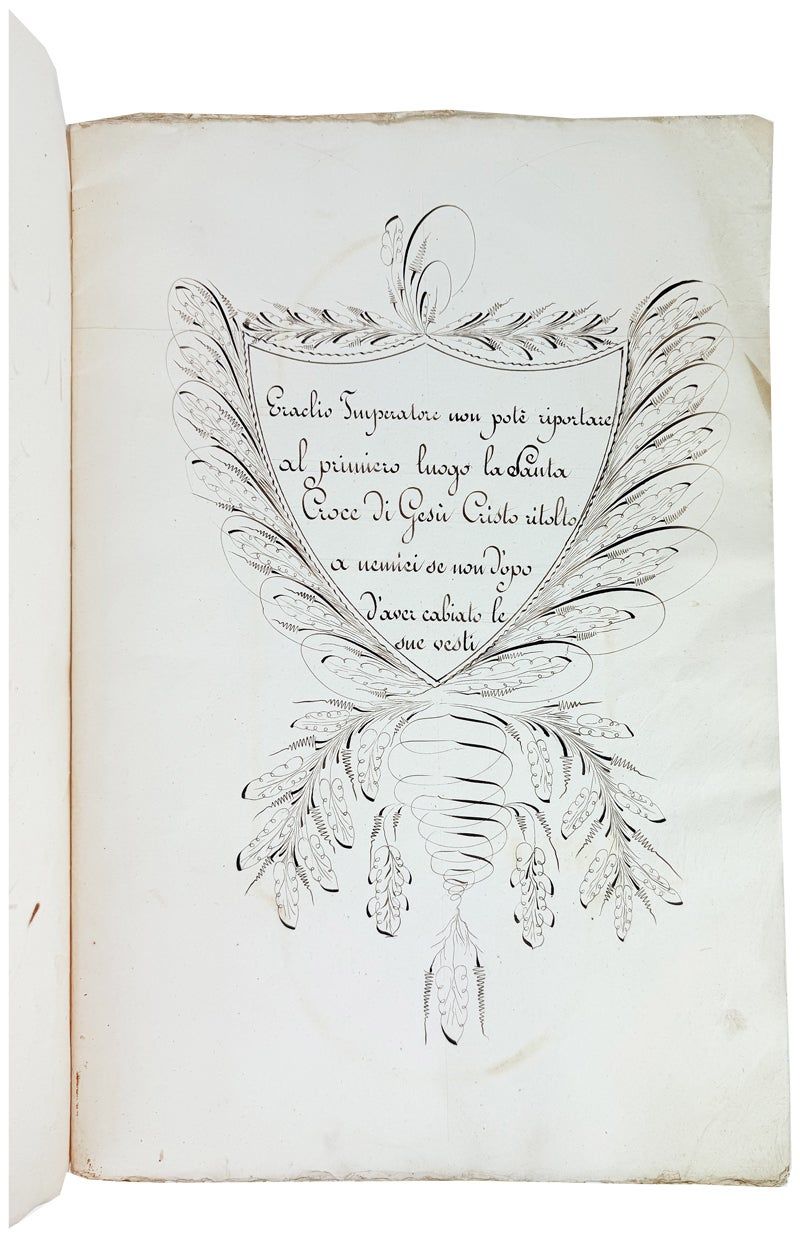 Eraclio Imperatore non potè riportare
al primiero luogo la Santa
Croce di Gesù Cristo ritolto
a nemici se non d'opo
d'aver cabiato le
sue vesti